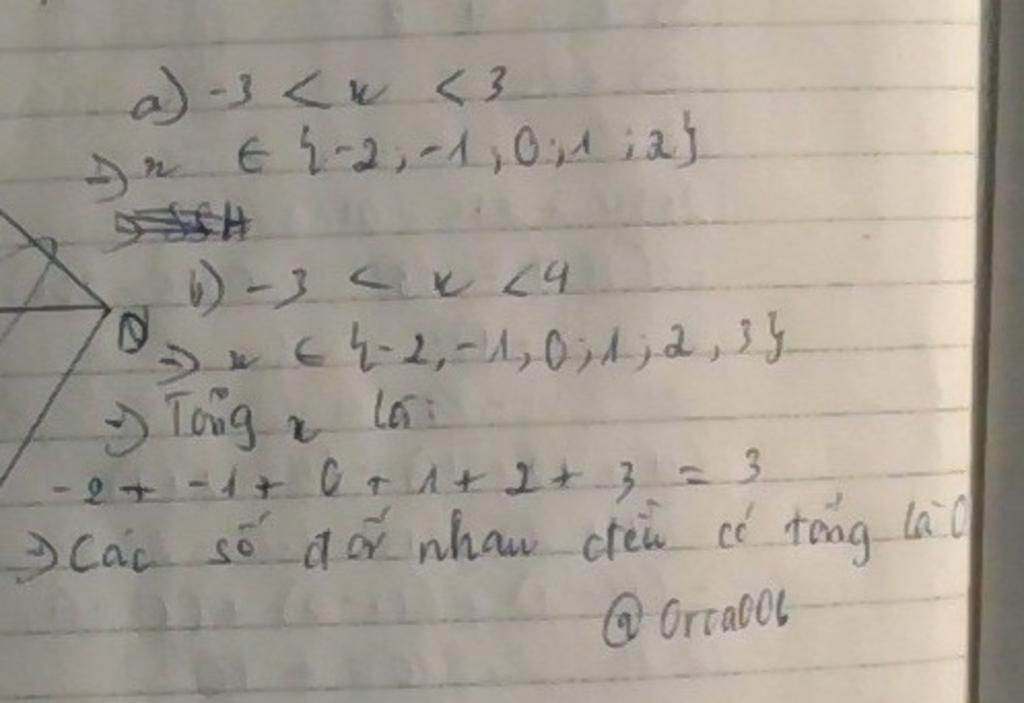 a) -3 < x < 3
=> x ∈ {-2; -1; 0; 1; 2}
b) -3 < x < 4
=> x ∈ {-2, -1, 0; 1; 2, 3}
=> Tổng x là:
-2 + -1 + 0 + 1 + 2 + 3 = 3
=> Các số đối nhau đều có tổng là 0
@Orca006